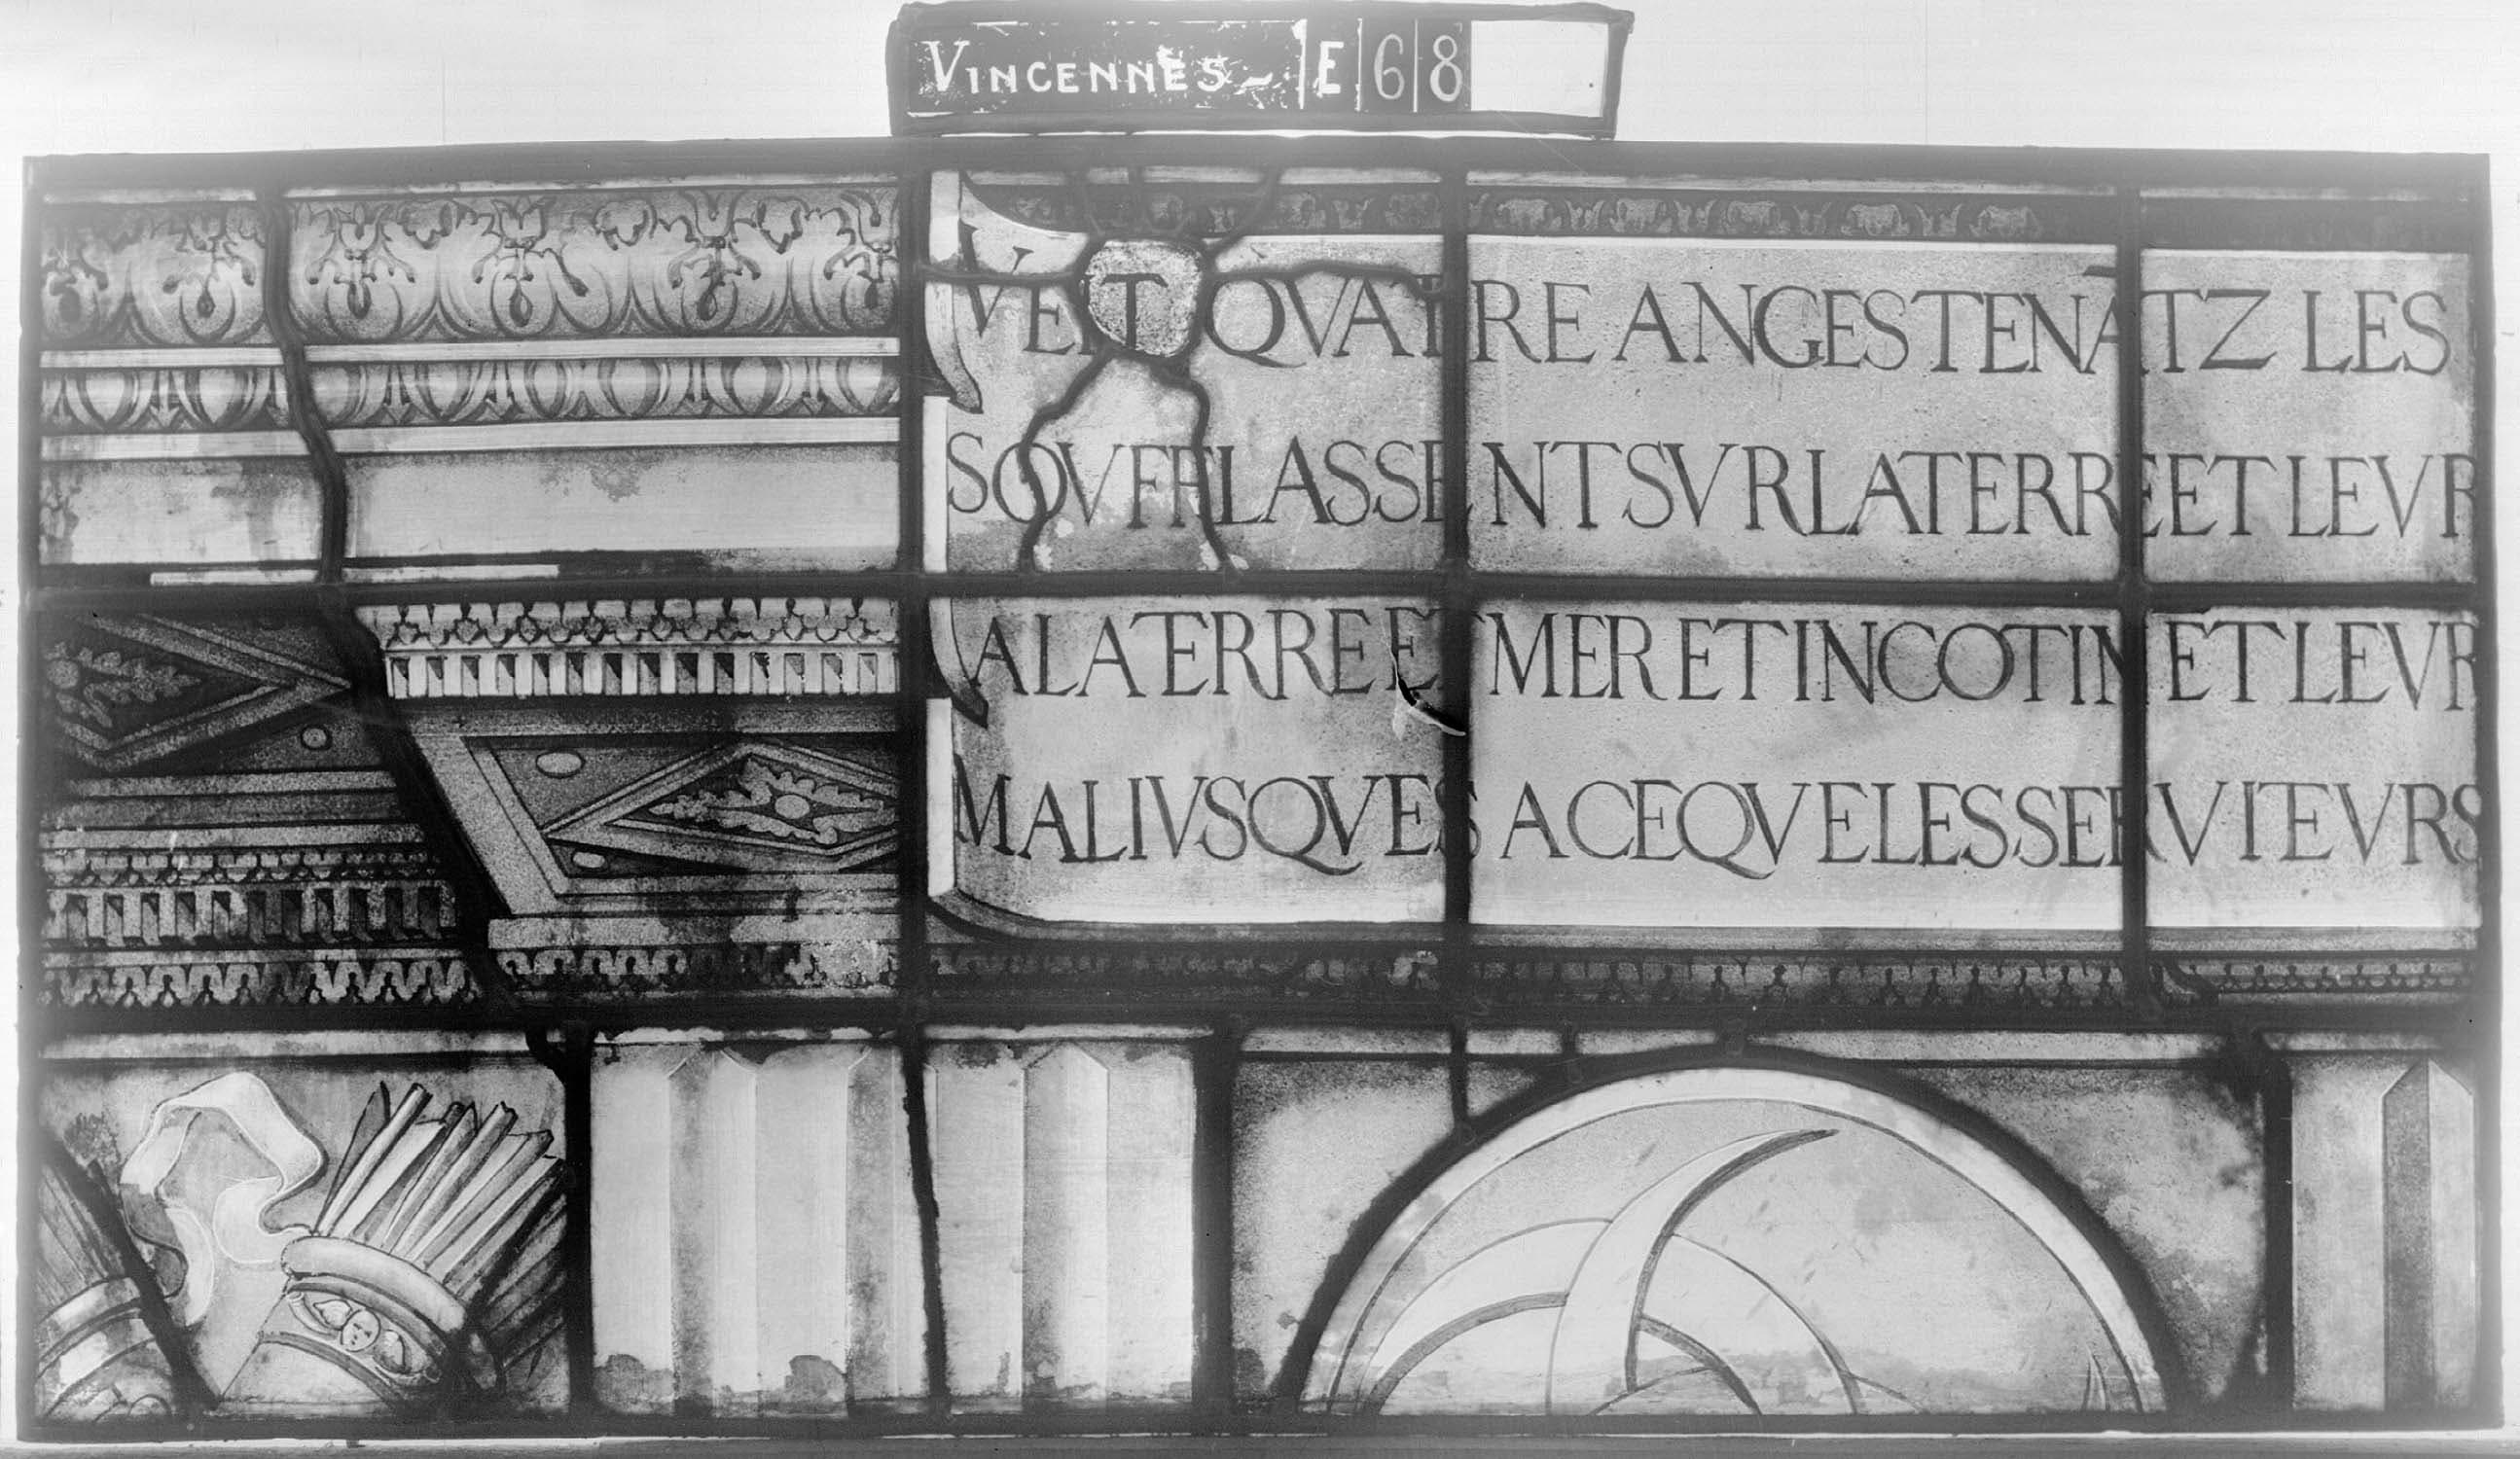 VINCENNES - E 68
VEIT QVATRE ANGES TENĀTZ LES
SOVFFLASSENT SVR LA TERRE ET LEVR
A LA TERRE ET MER ET INCOTIN ET LEVR
MAL IVSQVES A CE QVE LES SERVITEVRS